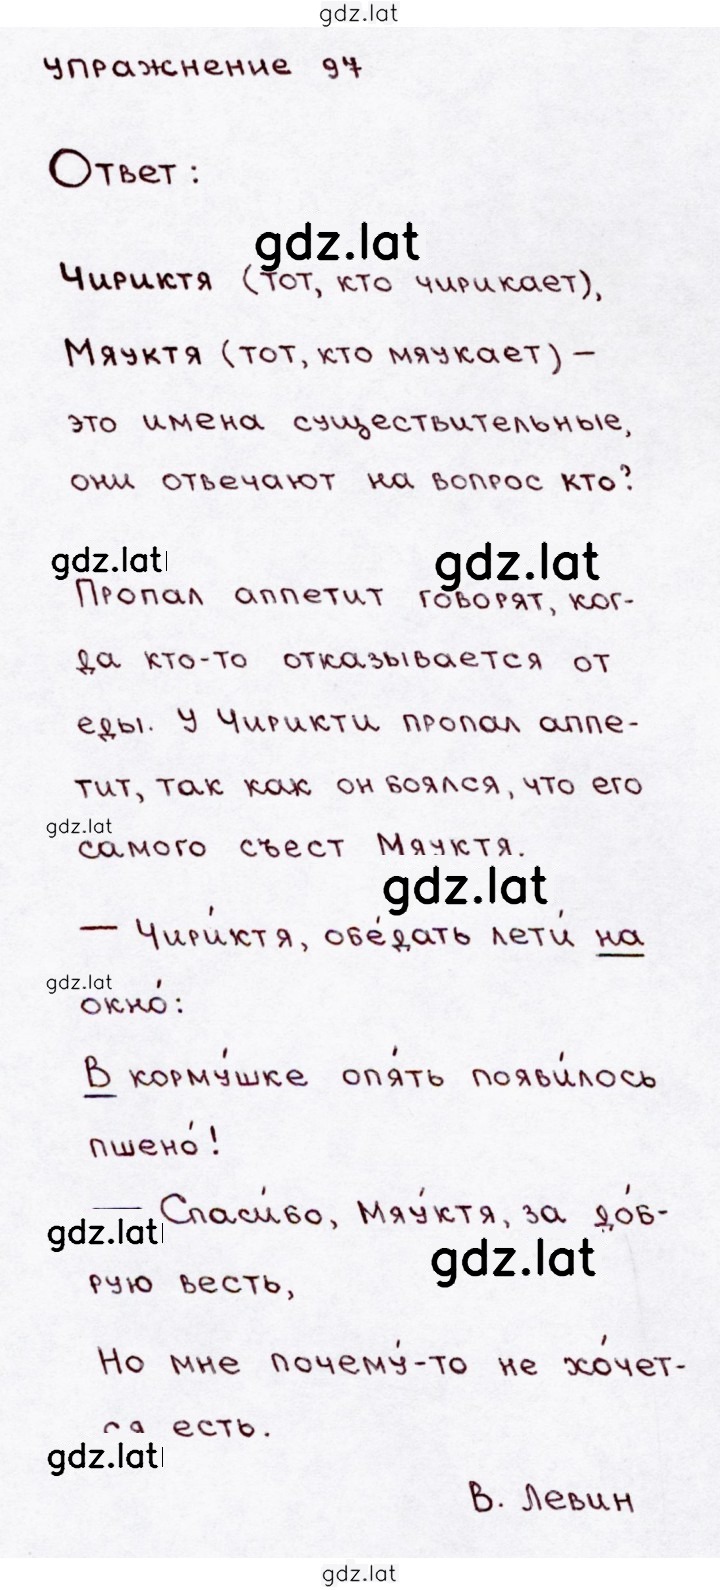 gdz.lat
упражнение 97
Ответ:
gdz.lat
Чириктя (тот, кто чирикает),
Мяуктя (тот, кто мяукает) –
это имена существительные,
они отвечают на вопрос кто?
gdz.lat gdz.lat
Пропал аппетит говорят, ког-
да кто-то отказывается от
еды. У Чирикти пропал аппе-
тит, так как он боялся, что его
gdz.lat
самого съест Мяуктя.
gdz.lat
— Чири́ктя, обе́дать лети́ на
gdz.lat
окно́:
В корму́шке опя́ть появи́лось
пшено́!
— Спаси́бо, Мяу́ктя, за до́б-
gdz.lat gdz.lat
рую весть,
Но мне почему́-то не хо́чет-
ся есть.
gdz.lat
В. Левин
gdz.lat